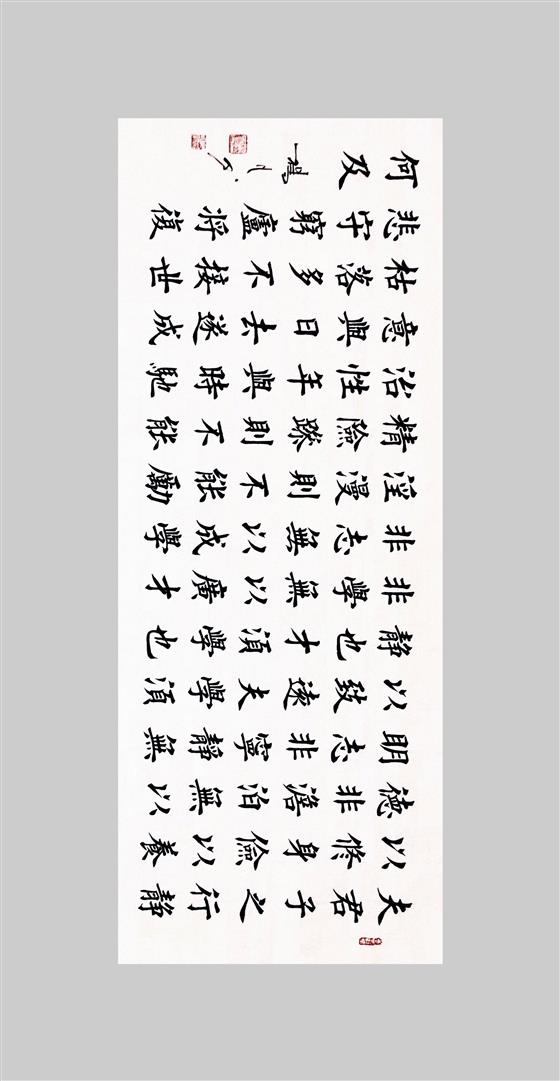 夫君子之行静
以修身儉以養
德非澹泊無以
明志非寧静無
以致遠夫學須
静也才須學也
非學無以廣才
非志無以成學
淫漫則不能勵
精險躁則不能
治性年與時馳
意與日去遂成
枯落多不接世
悲守窮廬將復
何及